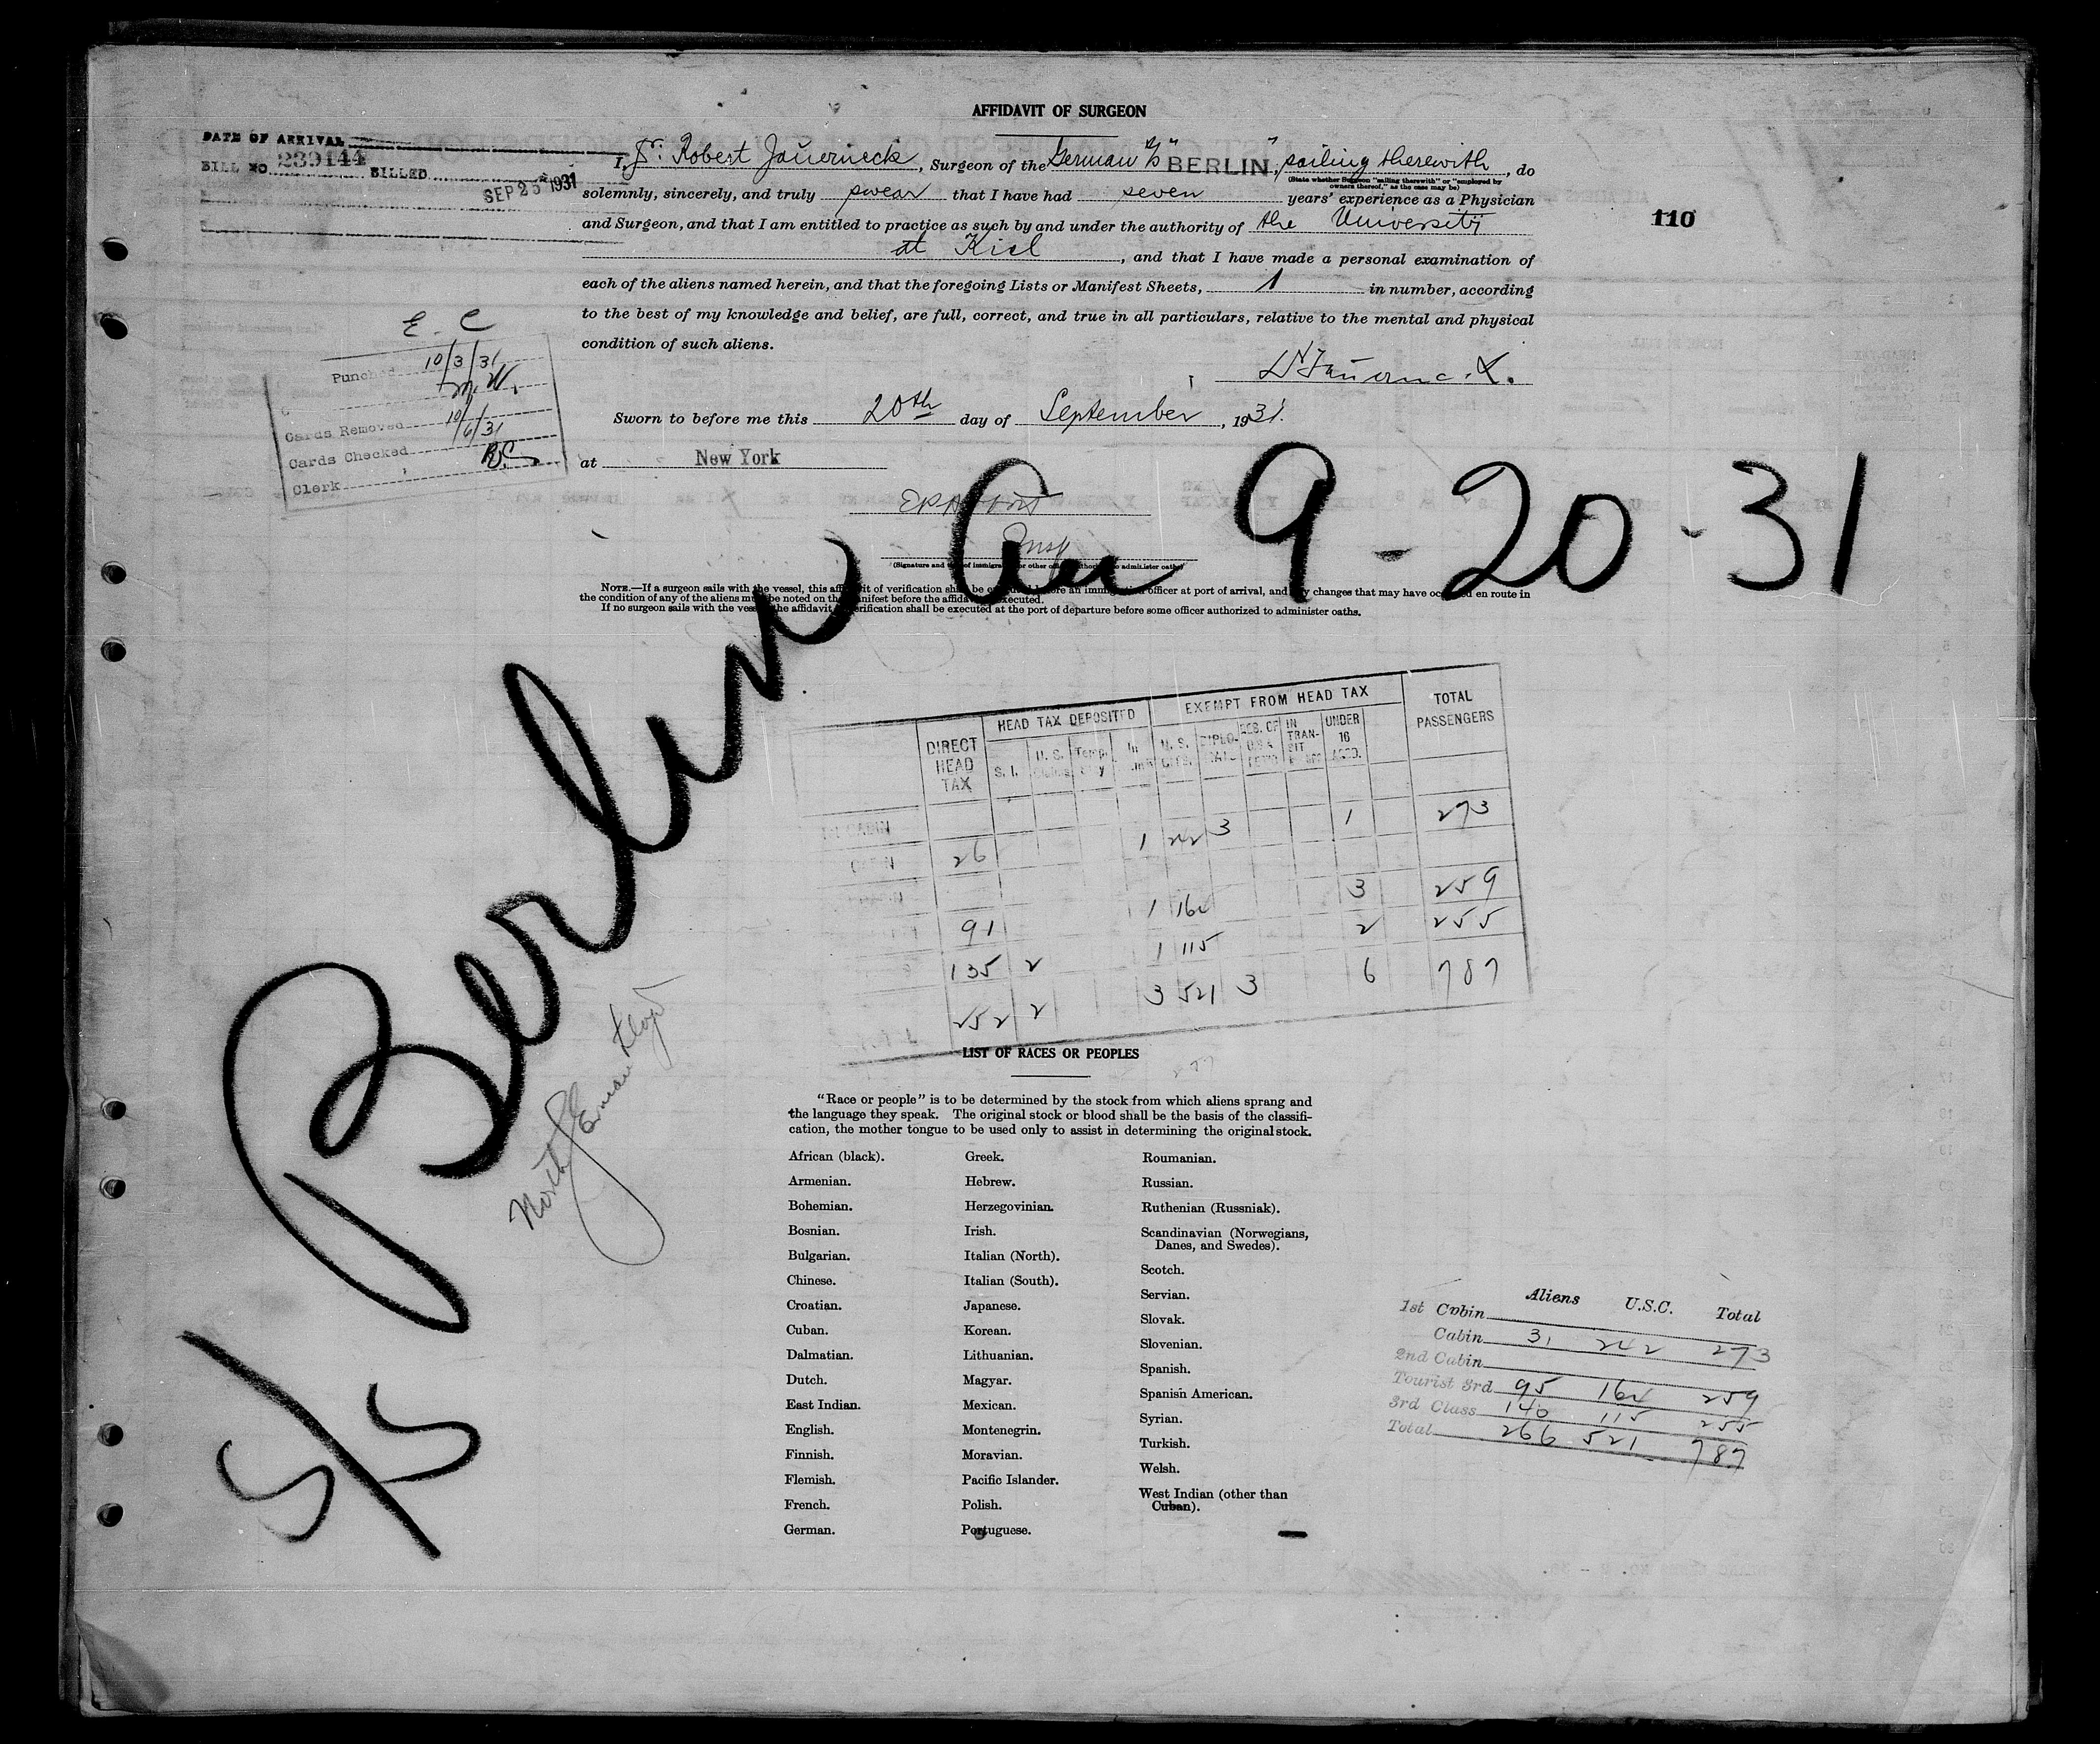 AFFIDAVIT OF SURGEON
DATE OF ARRIVAL
BILL NO 239144 BILLED
SEP 25 1931
I, Dr. Robert Jauerneck, Surgeon of the German S/S "BERLIN", sailing therewith, do
(State whether Surgeon "sailing therewith" or "employed by
owners thereof," as the case may be)
solemnly, sincerely, and truly swear that I have had seven years' experience as a Physician
and Surgeon, and that I am entitled to practice as such by and under the authority of the University
at Kiel, and that I have made a personal examination of
each of the aliens named herein, and that the foregoing Lists or Manifest Sheets, 1 in number, according
to the best of my knowledge and belief, are full, correct, and true in all particulars, relative to the mental and physical
condition of such aliens.
110
E. C
Punched 10/3/31
M.W.
Cards Removed 10/6/31
Cards Checked
Clerk
Sworn to before me this 20th day of September, 1931.
at New York
Insp
(Signature and title of immigration or other officer authorized to administer oaths)
NOTE.—If a surgeon sails with the vessel, this affidavit of verification shall be executed before an immigration officer at port of arrival, and any changes that may have occurred en route in
the condition of any of the aliens must be noted on the manifest before the affidavit is executed.
If no surgeon sails with the vessel the affidavit of verification shall be executed at the port of departure before some officer authorized to administer oaths.
S/S Berlin Arr 9-20-31
North German Lloyd
DIRECT HEAD TAX
HEAD TAX DEPOSITED
EXEMPT FROM HEAD TAX
TOTAL PASSENGERS
S. I. U. S. Temp. In U. S. DIPLO- RES. OF IN TRAN- SIT UNDER 16 ACCD.
CABIN 26 1 242 3 1 273
91 1 164 3 259
135 2 1 115 2 255
252 2 3 521 3 6 787
LIST OF RACES OR PEOPLES
"Race or people" is to be determined by the stock from which aliens sprang and
the language they speak. The original stock or blood shall be the basis of the classifi-
cation, the mother tongue to be used only to assist in determining the original stock.
African (black).
Armenian.
Bohemian.
Bosnian.
Bulgarian.
Chinese.
Croatian.
Cuban.
Dalmatian.
Dutch.
East Indian.
English.
Finnish.
Flemish.
French.
German.
Greek.
Hebrew.
Herzegovinian.
Irish.
Italian (North).
Italian (South).
Japanese.
Korean.
Lithuanian.
Magyar.
Mexican.
Montenegrin.
Moravian.
Pacific Islander.
Polish.
Portuguese.
Roumanian.
Russian.
Ruthenian (Russniak).
Scandinavian (Norwegians,
Danes, and Swedes).
Scotch.
Servian.
Slovak.
Slovenian.
Spanish.
Spanish American.
Syrian.
Turkish.
Welsh.
West Indian (other than
Cuban).
Aliens U.S.C. Total
1st Cabin
Cabin 31 242 273
2nd Cabin
Tourist 3rd 95 164 259
3rd Class 140 115 255
Total 266 521 787